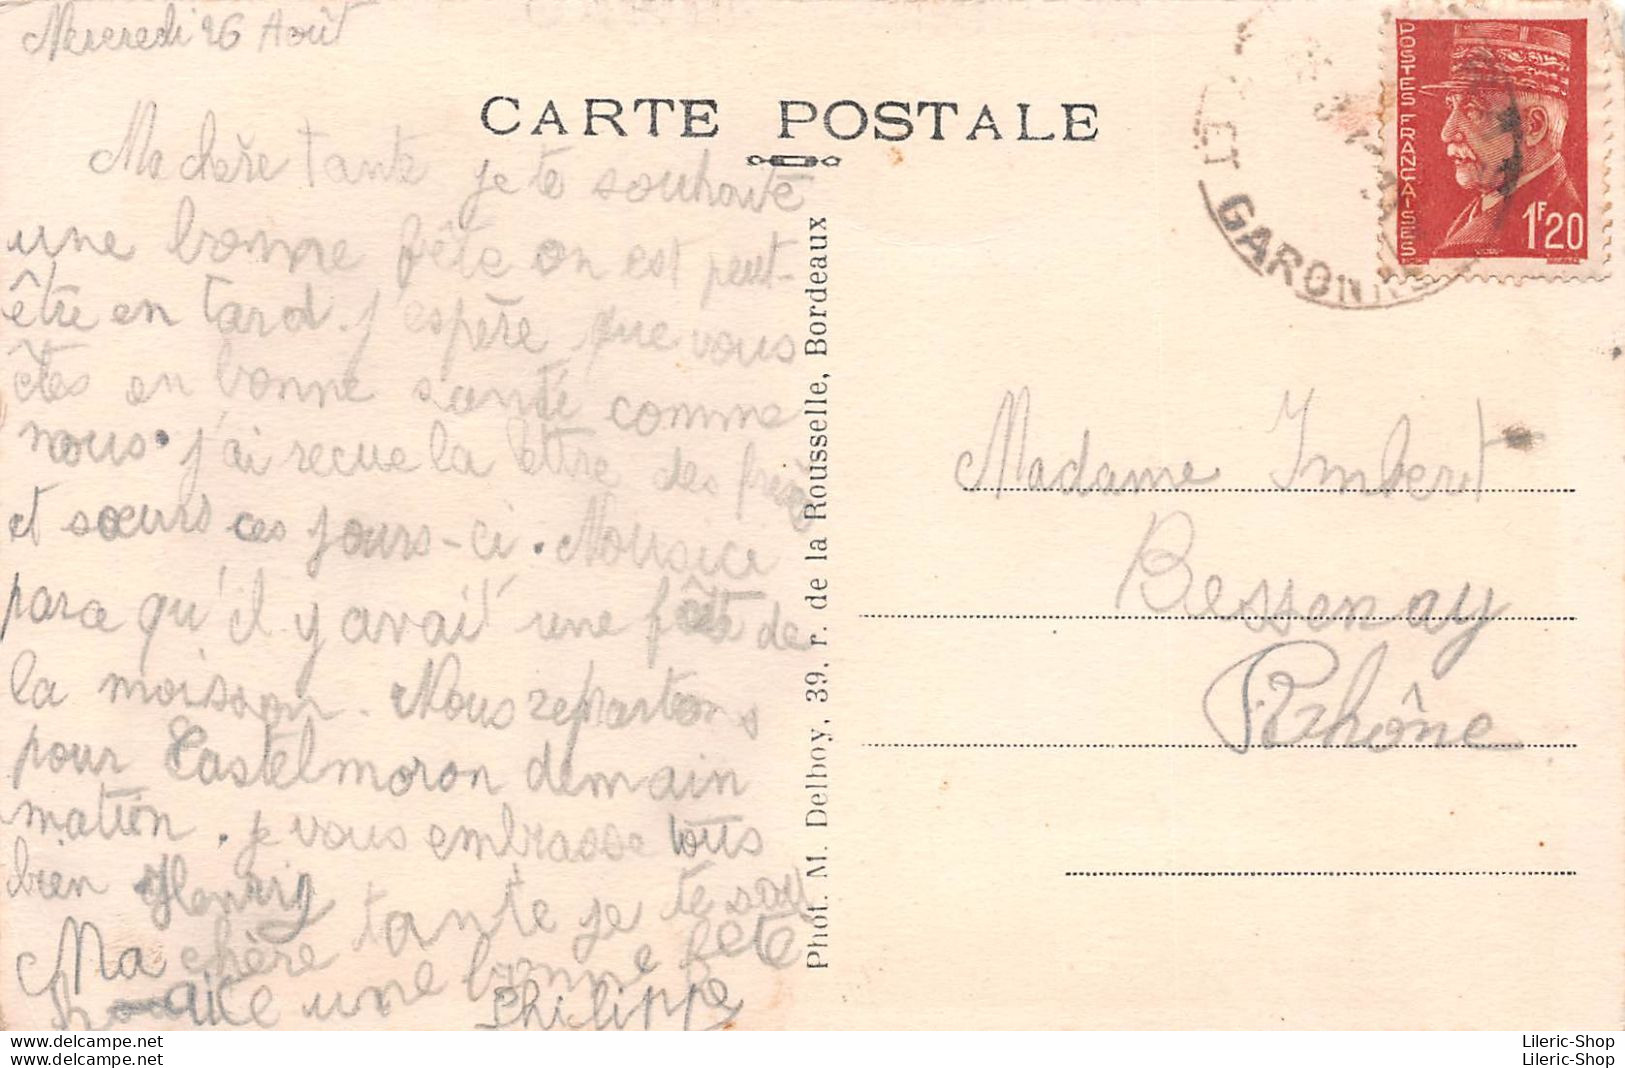 Mercredi 26 Août
CARTE POSTALE
Ma chère tante je te souhaite
une bonne fête on est peut-
être en tard. j'espère que vous
êtes en bonne santé comme
nous. j'ai recue la lettre des frères
et sœurs ces jours-ci.
para qu'il y avait une fête de
la moisson. Nous repartons
pour Castelmoron demain
matin. je vous embrasse tous
bien Henry
Ma chère tante je te sou
haite une bonne fête
Philippe
Phot. M. Delboy, 39, r. de la Rousselle, Bordeaux
ET GARONNE
POSTES FRANÇAISES
1F20
Madame Imbert
Bessenay
Rhône
Lileric-Shop
Lileric-Shop
Lileric-Shop
Lileric-Shop